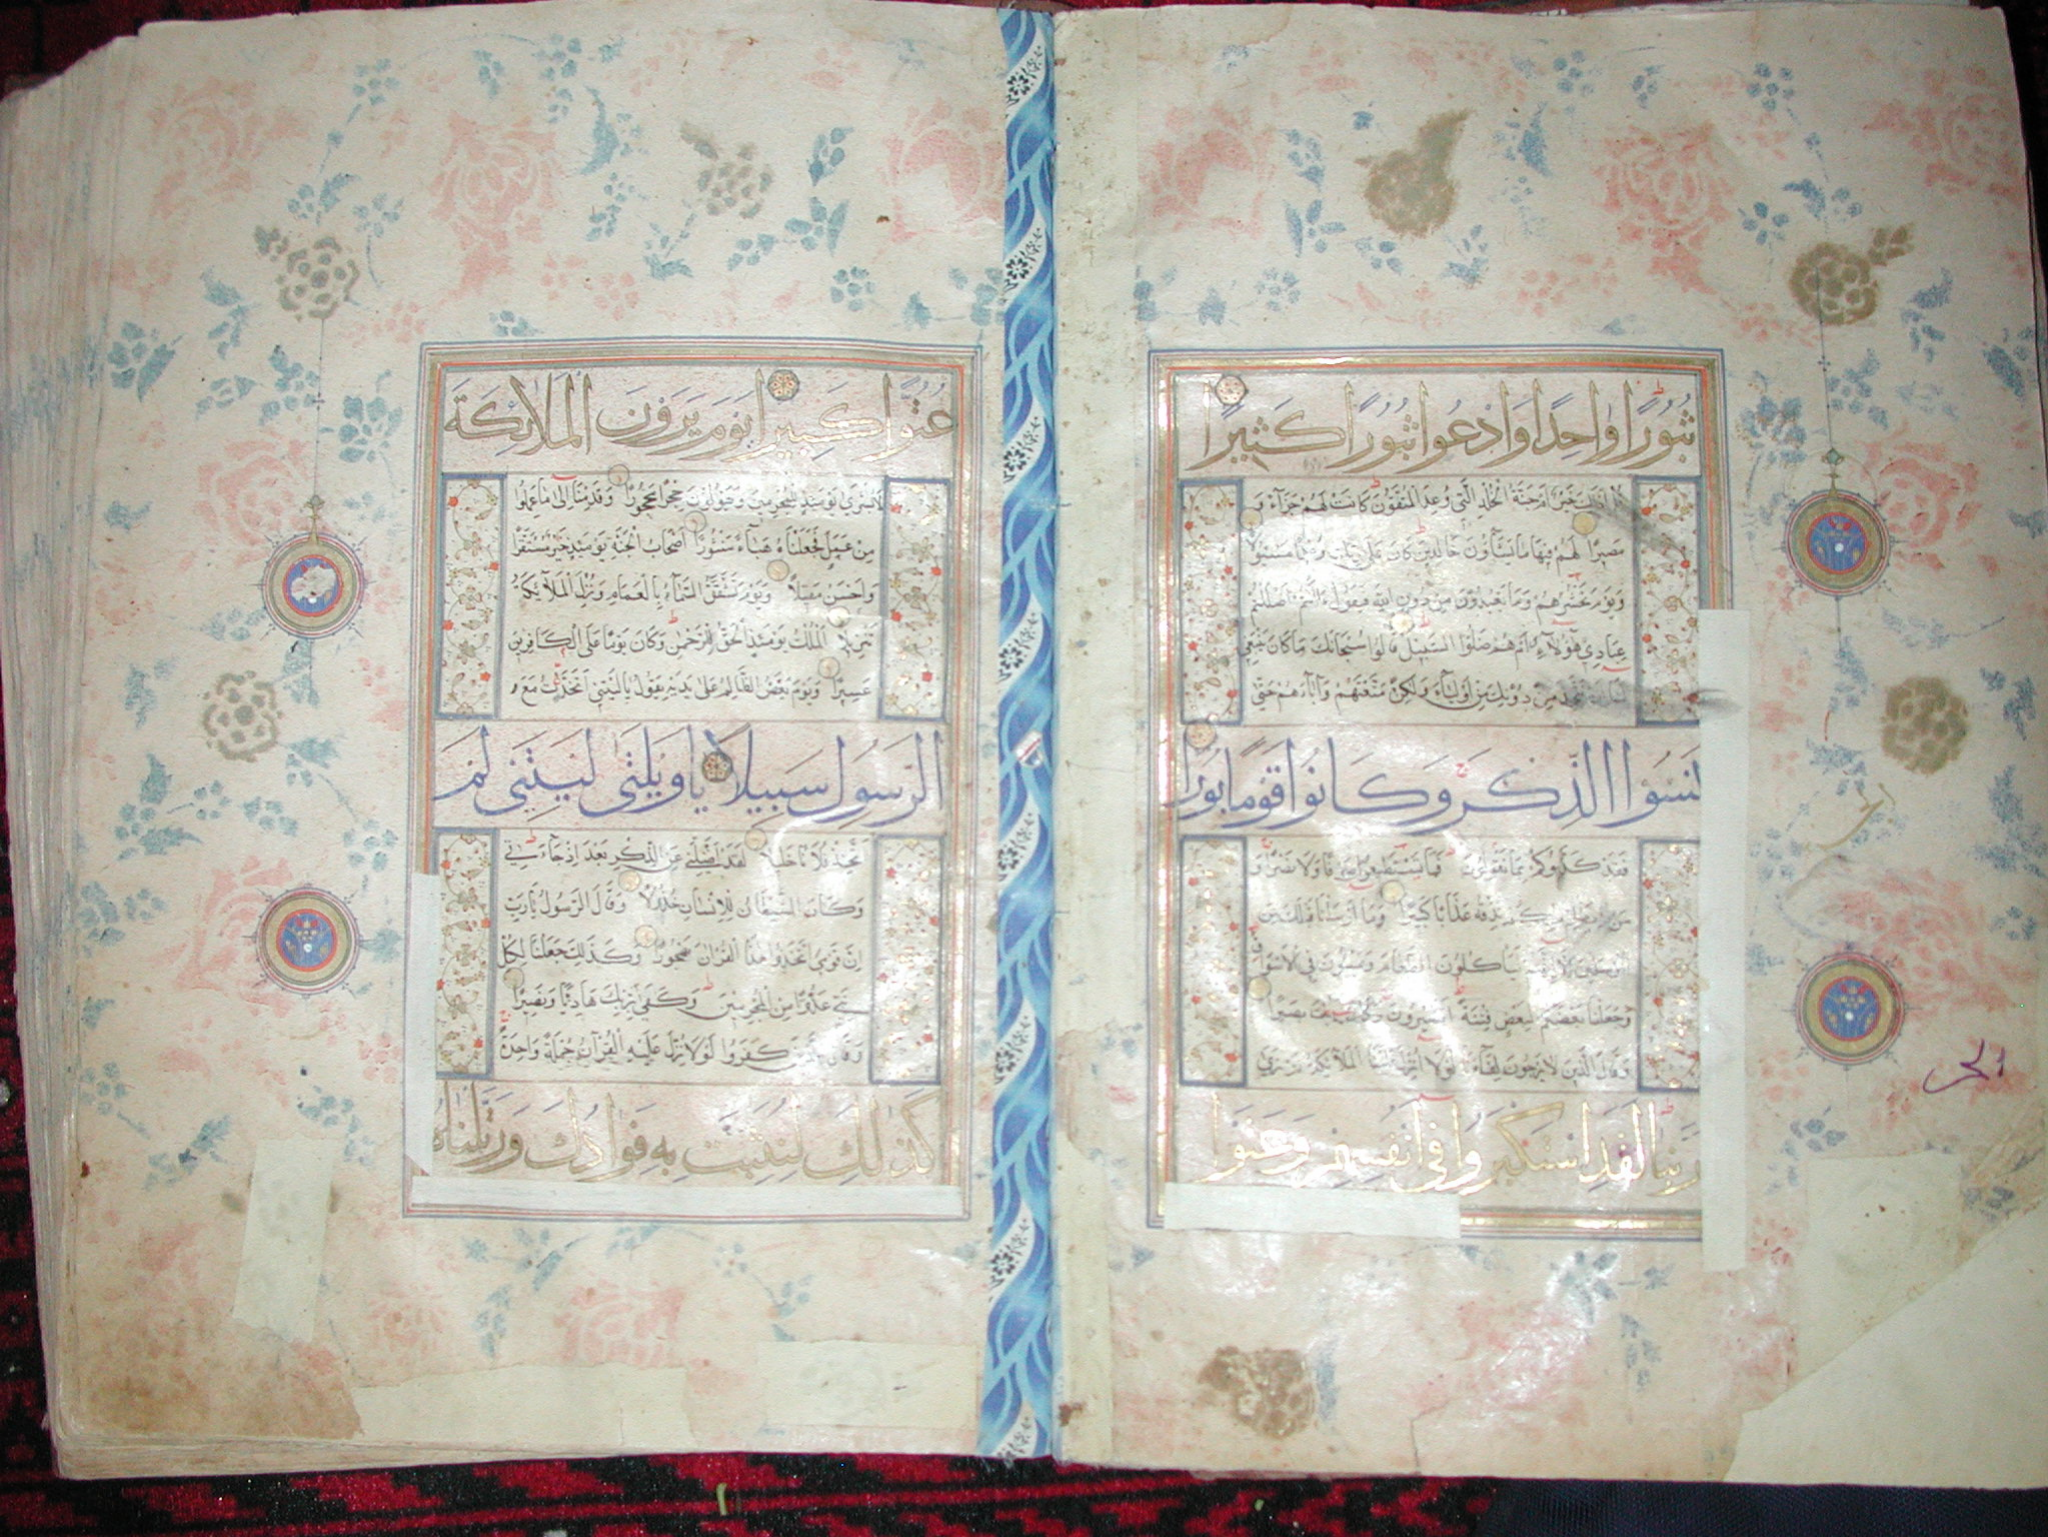 ثُبُورًا وَاحِدًا وَادْعُوا ثُبُورًا كَثِيرًا
قُلْ أَذَٰلِكَ خَيْرٌ أَمْ جَنَّةُ الْخُلْدِ الَّتِي وُعِدَ الْمُتَّقُونَ كَانَتْ لَهُمْ جَزَاءً وَ
مَصِيرًا لَهُمْ فِيهَا مَا يَشَاؤُنَ خَالِدِينَ كَانَ عَلَىٰ رَبِّكَ وَعْدًا مَسْئُولًا
وَيَوْمَ يَحْشُرُهُمْ وَمَا يَعْبُدُونَ مِنْ دُونِ اللَّهِ فَيَقُولُ ءَأَنْتُمْ أَضْلَلْتُمْ
عِبَادِي هَٰؤُلَاءِ أَمْ هُمْ ضَلُّوا السَّبِيلَ قَالُوا سُبْحَانَكَ مَا كَانَ يَنْبَغِي
لَنَا أَنْ نَتَّخِذَ مِنْ دُونِكَ مِنْ أَوْلِيَاءَ وَلَٰكِنْ مَتَّعْتَهُمْ وَآبَاءَهُمْ حَتَّىٰ
نَسَوُا الذِّكْرَ وَكَانُوا قَوْمًا بُورًا
فَقَدْ كَذَّبُوكُمْ بِمَا تَقُولُونَ فَمَا تَسْتَطِيعُونَ صَرْفًا وَلَا نَصْرًا وَ
مَنْ يَظْلِمْ مِنْكُمْ نُذِقْهُ عَذَابًا كَبِيرًا وَمَا أَرْسَلْنَا قَبْلَكَ مِنَ
الْمُرْسَلِينَ إِلَّا إِنَّهُمْ لَيَأْكُلُونَ الطَّعَامَ وَيَمْشُونَ فِي الْأَسْوَاقِ
وَجَعَلْنَا بَعْضَكُمْ لِبَعْضٍ فِتْنَةً أَتَصْبِرُونَ وَكَانَ رَبُّكَ بَصِيرًا
وَقَالَ الَّذِينَ لَا يَرْجُونَ لِقَاءَنَا لَوْلَا أُنْزِلَ عَلَيْنَا الْمَلَائِكَةُ أَوْ نَرَىٰ
رَبَّنَا لَقَدِ اسْتَكْبَرُوا فِي أَنْفُسِهِمْ وَعَتَوْا
عُتُوًّا كَبِيرًا يَوْمَ يَرَوْنَ الْمَلَائِكَةَ
لَا بُشْرَىٰ يَوْمَئِذٍ لِلْمُجْرِمِينَ وَيَقُولُونَ حِجْرًا مَحْجُورًا وَقَدِمْنَا إِلَىٰ مَا عَمِلُوا
مِنْ عَمَلٍ فَجَعَلْنَاهُ هَبَاءً مَنْثُورًا أَصْحَابُ الْجَنَّةِ يَوْمَئِذٍ خَيْرٌ مُسْتَقَرًّا
وَأَحْسَنُ مَقِيلًا وَيَوْمَ تَشَقَّقُ السَّمَاءُ بِالْغَمَامِ وَنُزِّلَ الْمَلَائِكَةُ
تَنْزِيلًا الْمُلْكُ يَوْمَئِذٍ الْحَقُّ لِلرَّحْمَٰنِ وَكَانَ يَوْمًا عَلَى الْكَافِرِينَ
عَسِيرًا وَيَوْمَ يَعَضُّ الظَّالِمُ عَلَىٰ يَدَيْهِ يَقُولُ يَا لَيْتَنِي اتَّخَذْتُ مَعَ
الرَّسُولِ سَبِيلًا يَا وَيْلَتَىٰ لَيْتَنِي لَمْ
أَتَّخِذْ فُلَانًا خَلِيلًا لَقَدْ أَضَلَّنِي عَنِ الذِّكْرِ بَعْدَ إِذْ جَاءَنِي
وَكَانَ الشَّيْطَانُ لِلْإِنْسَانِ خَذُولًا وَقَالَ الرَّسُولُ يَا رَبِّ
إِنَّ قَوْمِي اتَّخَذُوا هَٰذَا الْقُرْآنَ مَهْجُورًا وَكَذَٰلِكَ جَعَلْنَا لِكُلِّ
نَبِيٍّ عَدُوًّا مِنَ الْمُجْرِمِينَ وَكَفَىٰ بِرَبِّكَ هَادِيًا وَنَصِيرًا
وَقَالَ الَّذِينَ كَفَرُوا لَوْلَا نُزِّلَ عَلَيْهِ الْقُرْآنُ جُمْلَةً وَاحِدَةً
كَذَٰلِكَ لِنُثَبِّتَ بِهِ فُوَادَكَ وَرَتَّلْنَاهُ